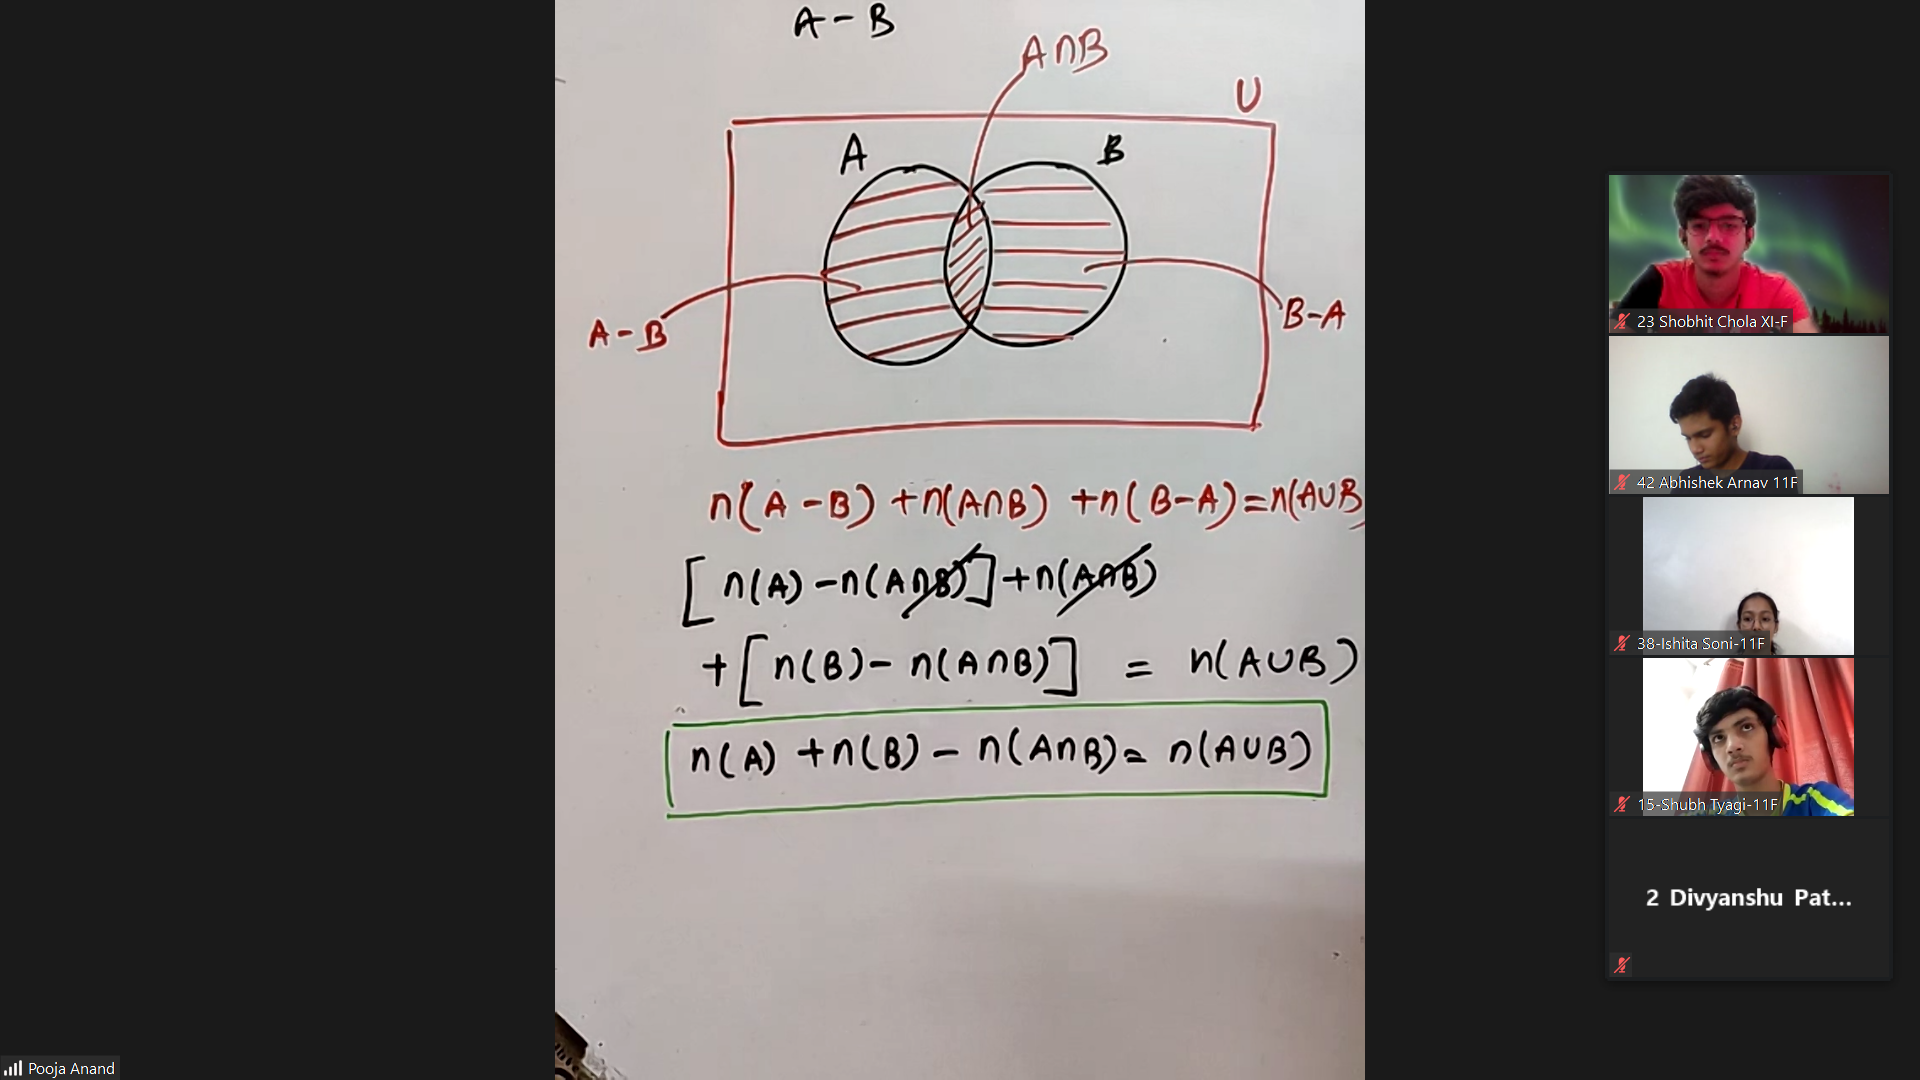 A - B
A∩B
U
A
B
A - B
B - A
n(A - B) + n(A∩B) + n(B - A) = n(A∪B
[n(A) - n(A∩B)] + n(A∩B)
+ [n(B) - n(A∩B)] = n(A∪B)
n(A) + n(B) - n(A∩B) = n(A∪B)
23 Shobhit Chola XI-F
42 Abhishek Arnav 11F
38-Ishita Soni-11F
15-Shubh Tyagi-11F
2 Divyanshu Pat...
Pooja Anand